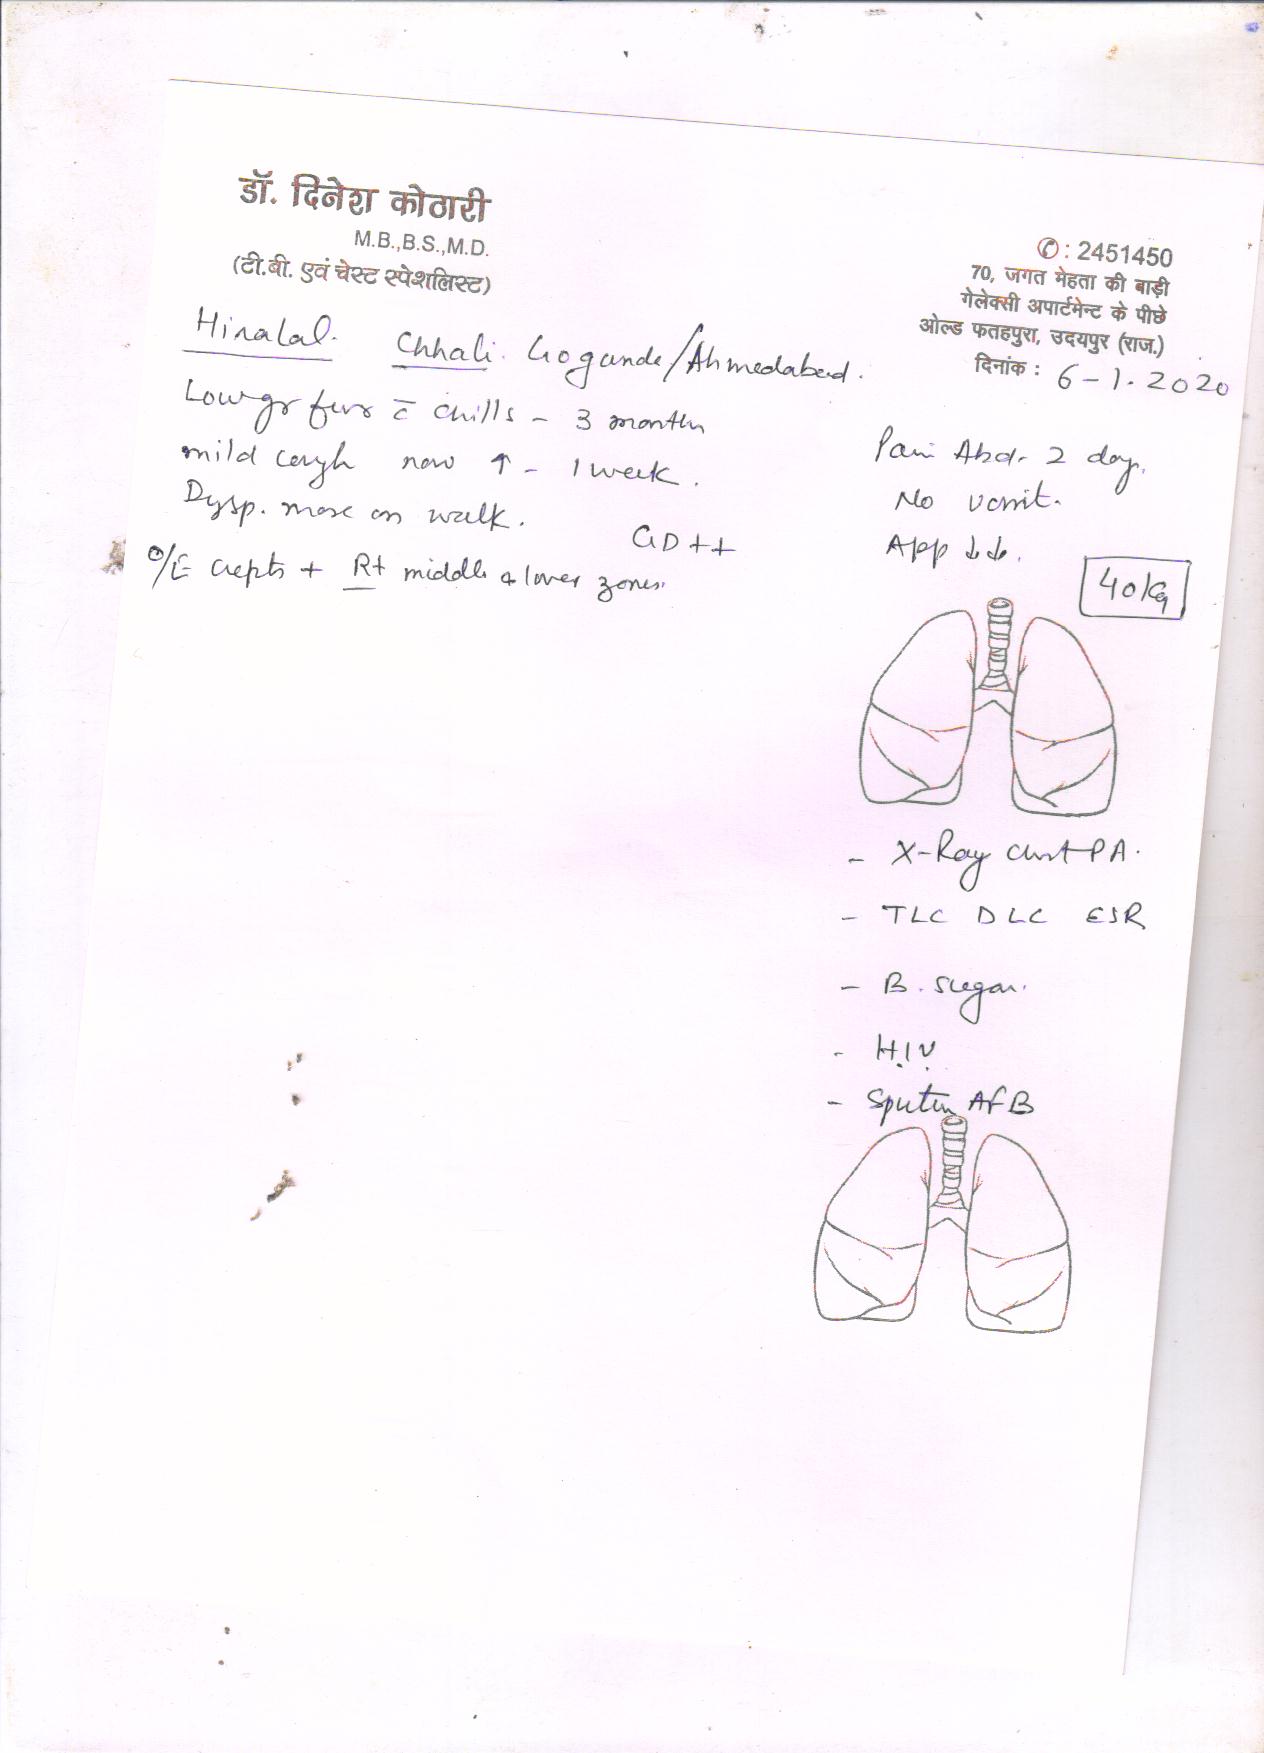 डॉ. दिनेश कोठारी
M.B.,B.S.,M.D.
(टी.बी. एवं चेस्ट स्पेशलिस्ट)
✆: 2451450
70, जगत मेहता की बाड़ी
गेलेक्सी अपार्टमेन्ट के पीछे
ओल्ड फतहपुरा, उदयपुर (राज.)
दिनांक : 6-1-2020
Hiralal. Chhali. Gogunda/Ahmedabad.
Low gr fever c̄ chills - 3 months
mild cough now ↑ - 1 week.
Dysp. more on walk.
GD++
O/E crepts + Rt middle & lower zones.
Pain Abd- 2 day.
No vomit.
App ↓↓.
40 kg
- X-Ray chest PA.
- TLC DLC ESR
- B. sugar.
- H.I.V.
- Sputum AFB